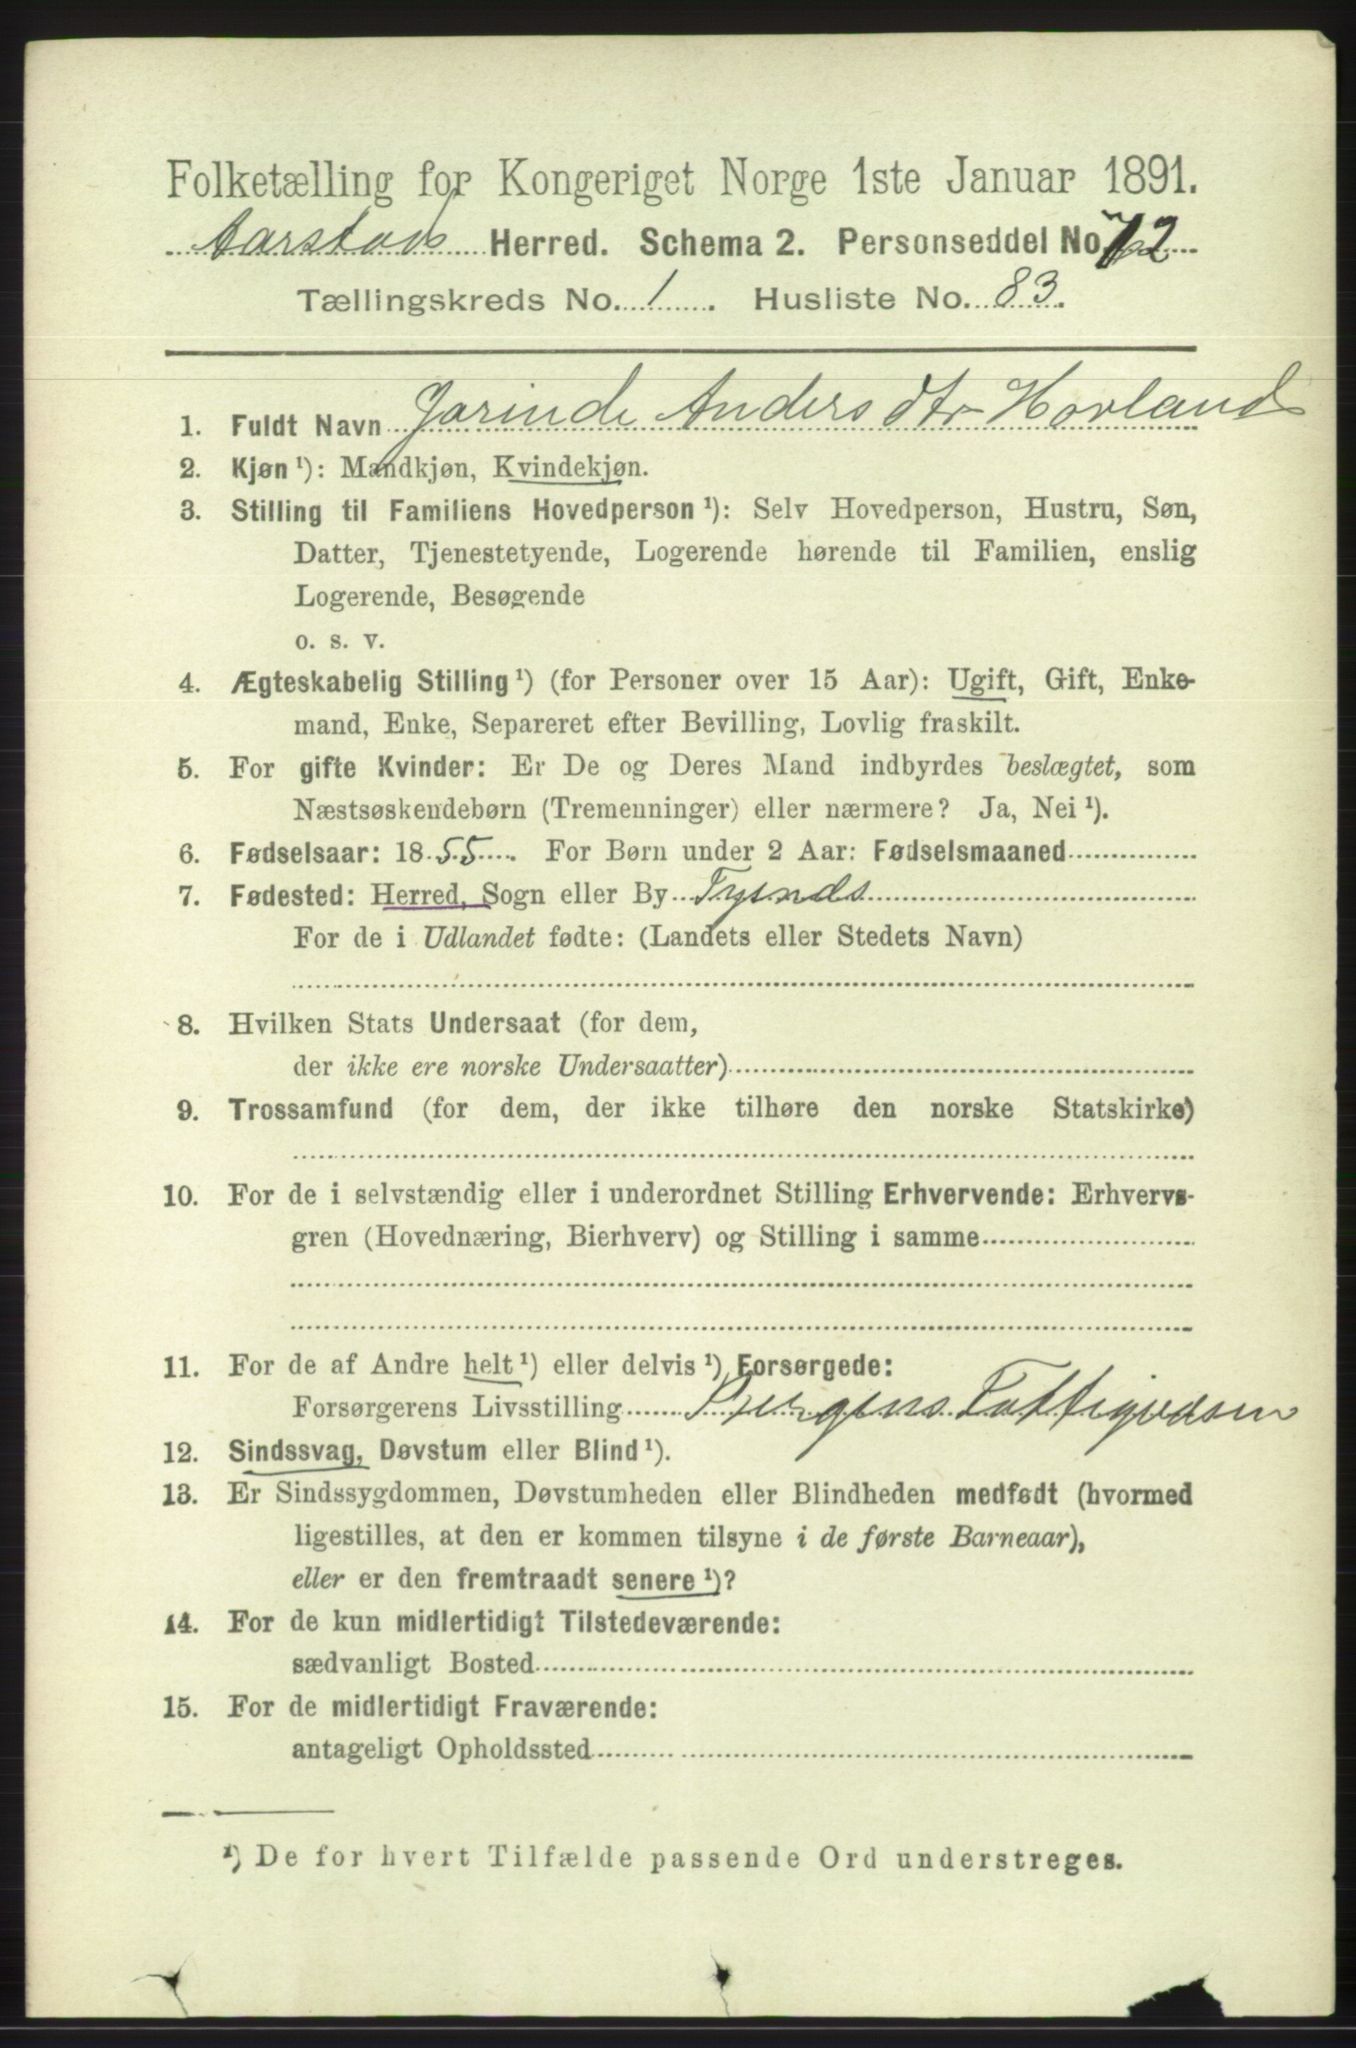 Folketælling for Kongeriget Norge 1ste Januar 1891.
Aarstads Herred. Schema 2. Personseddel No. 12
Tællingskreds No. 1. Husliste No. 83.
1. Fuldt Navn Jorinde Anders dtr Hovland
2. Kjøn ¹): Mandkjøn, Kvindekjøn.
3. Stilling til Familiens Hovedperson ¹): Selv Hovedperson, Hustru, Søn,
Datter, Tjenestetyende, Logerende hørende til Familien, enslig
Logerende, Besøgende
o. s. v.
4. Ægteskabelig Stilling ¹) (for Personer over 15 Aar): Ugift, Gift, Enke-
mand, Enke, Separeret efter Bevilling, Lovlig fraskilt.
5. For gifte Kvinder: Er De og Deres Mand indbyrdes beslægtet, som
Næstsøskendebørn (Tremenninger) eller nærmere? Ja, Nei ¹).
6. Fødselsaar: 1855. For Børn under 2 Aar: Fødselsmaaned
7. Fødested: Herred, Sogn eller By Tysnds
For de i Udlandet fødte: (Landets eller Stedets Navn)
8. Hvilken Stats Undersaat (for dem,
der ikke ere norske Undersaatter)
9. Trossamfund (for dem, der ikke tilhøre den norske Statskirke)
10. For de i selvstændig eller i underordnet Stilling Erhvervende: Erhvervs-
gren (Hovednæring, Bierhverv) og Stilling i samme
11. For de af Andre helt ¹) eller delvis ¹) Forsørgede:
Forsørgerens Livsstilling Bergens Fattigvæsen
12. Sindssvag, Døvstum eller Blind ¹).
13. Er Sindssygdommen, Døvstumheden eller Blindheden medfødt (hvormed
ligestilles, at den er kommen tilsyne i de første Barneaar),
eller er den fremtraadt senere ¹)?
14. For de kun midlertidigt Tilstedeværende:
sædvanligt Bosted
15. For de midlertidigt Fraværende:
antageligt Opholdssted
¹) De for hvert Tilfælde passende Ord understreges.